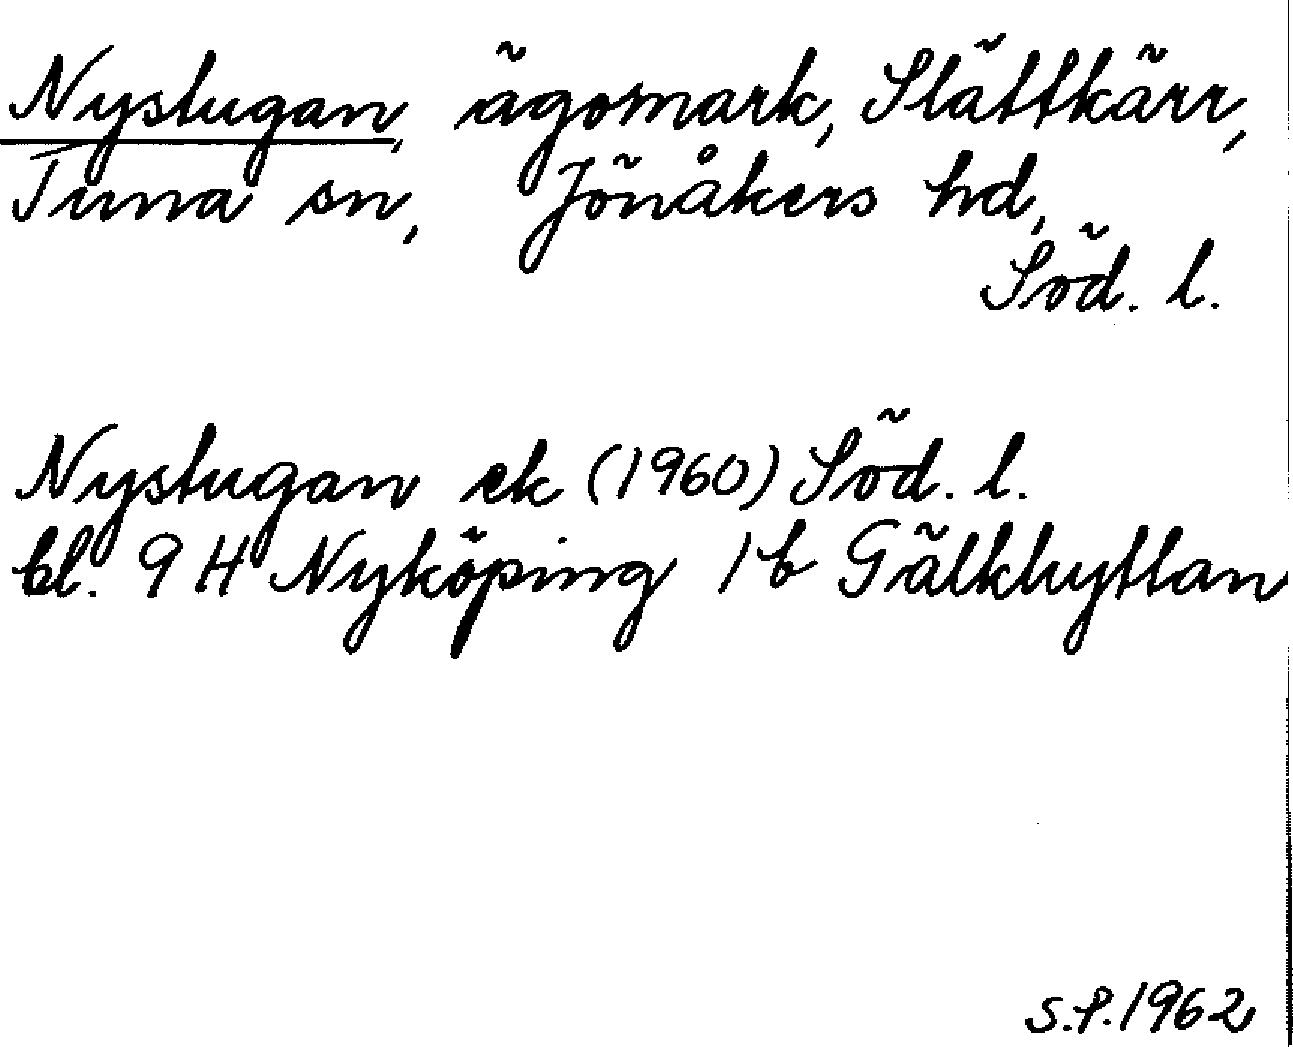 Nystugan, ägomark, Slättkärr,
Tuna sn, Jönåkers hd,
Söd. l.
Nystugan ek (1960) Söd. l.
bl. 9 H Nyköping 1 b Gälkhyttan
S.P. 1962